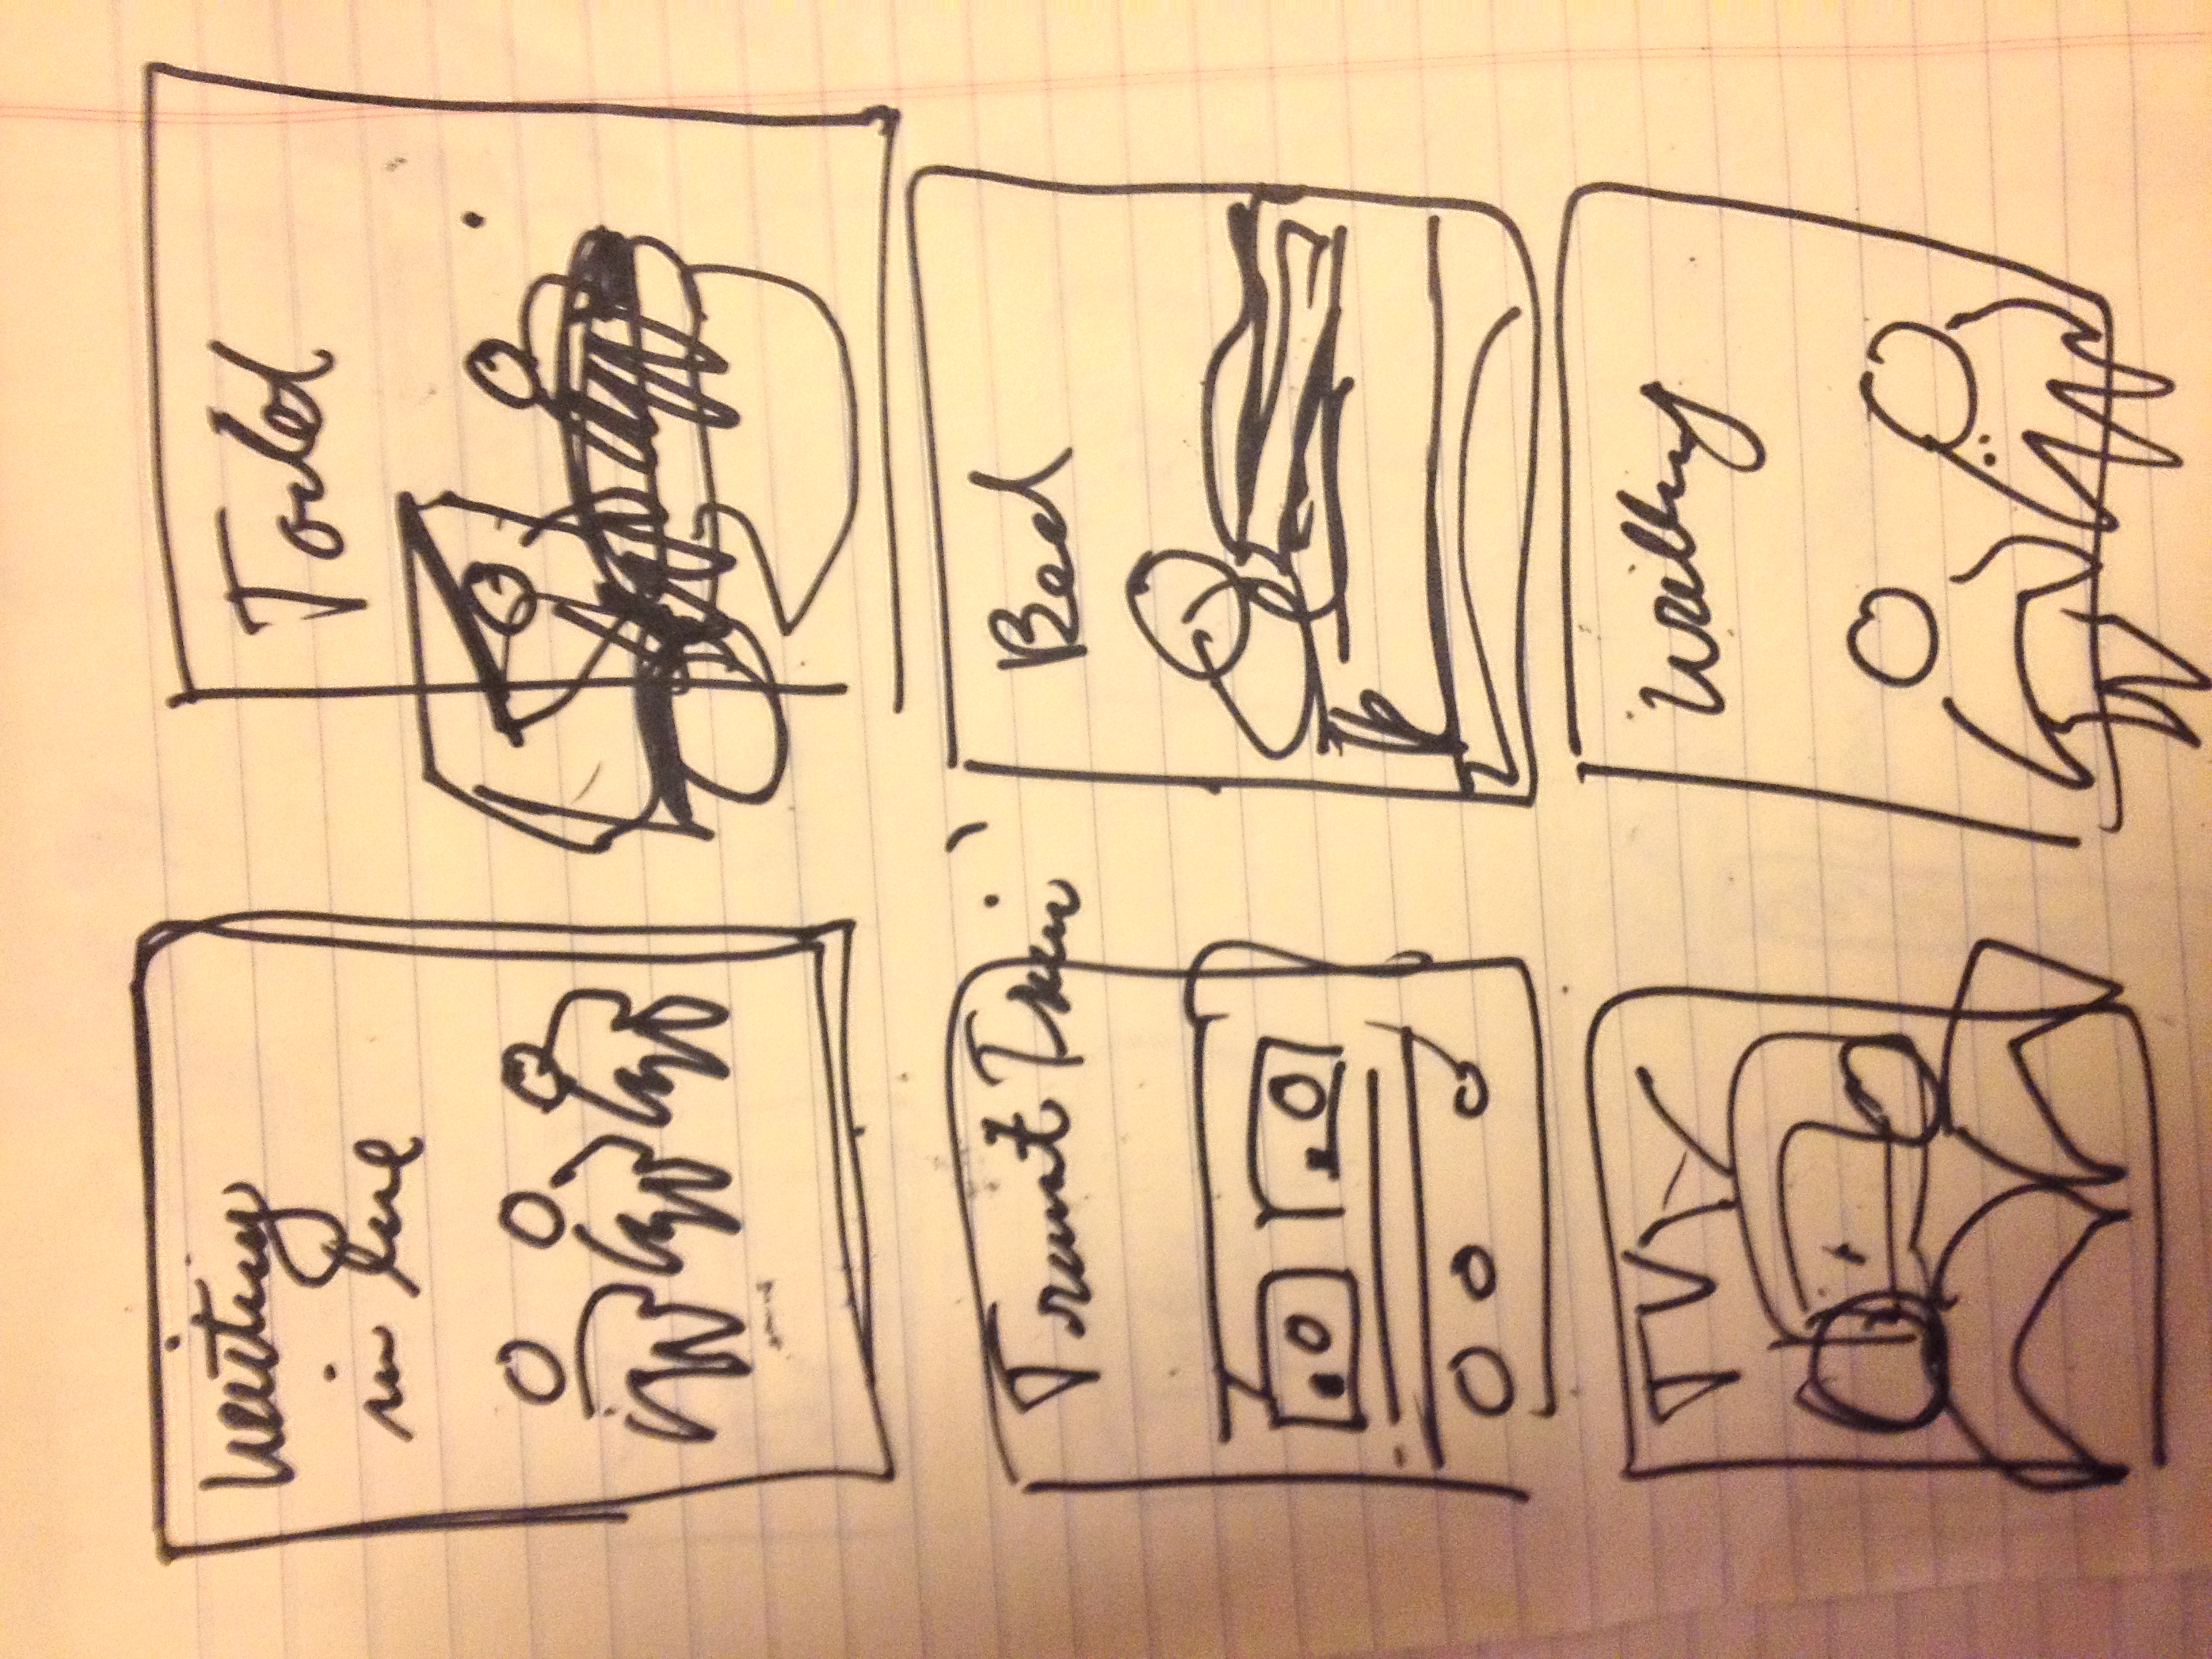 Waiting
in line
Toilet
Transit Train
Bed
TV
Walking